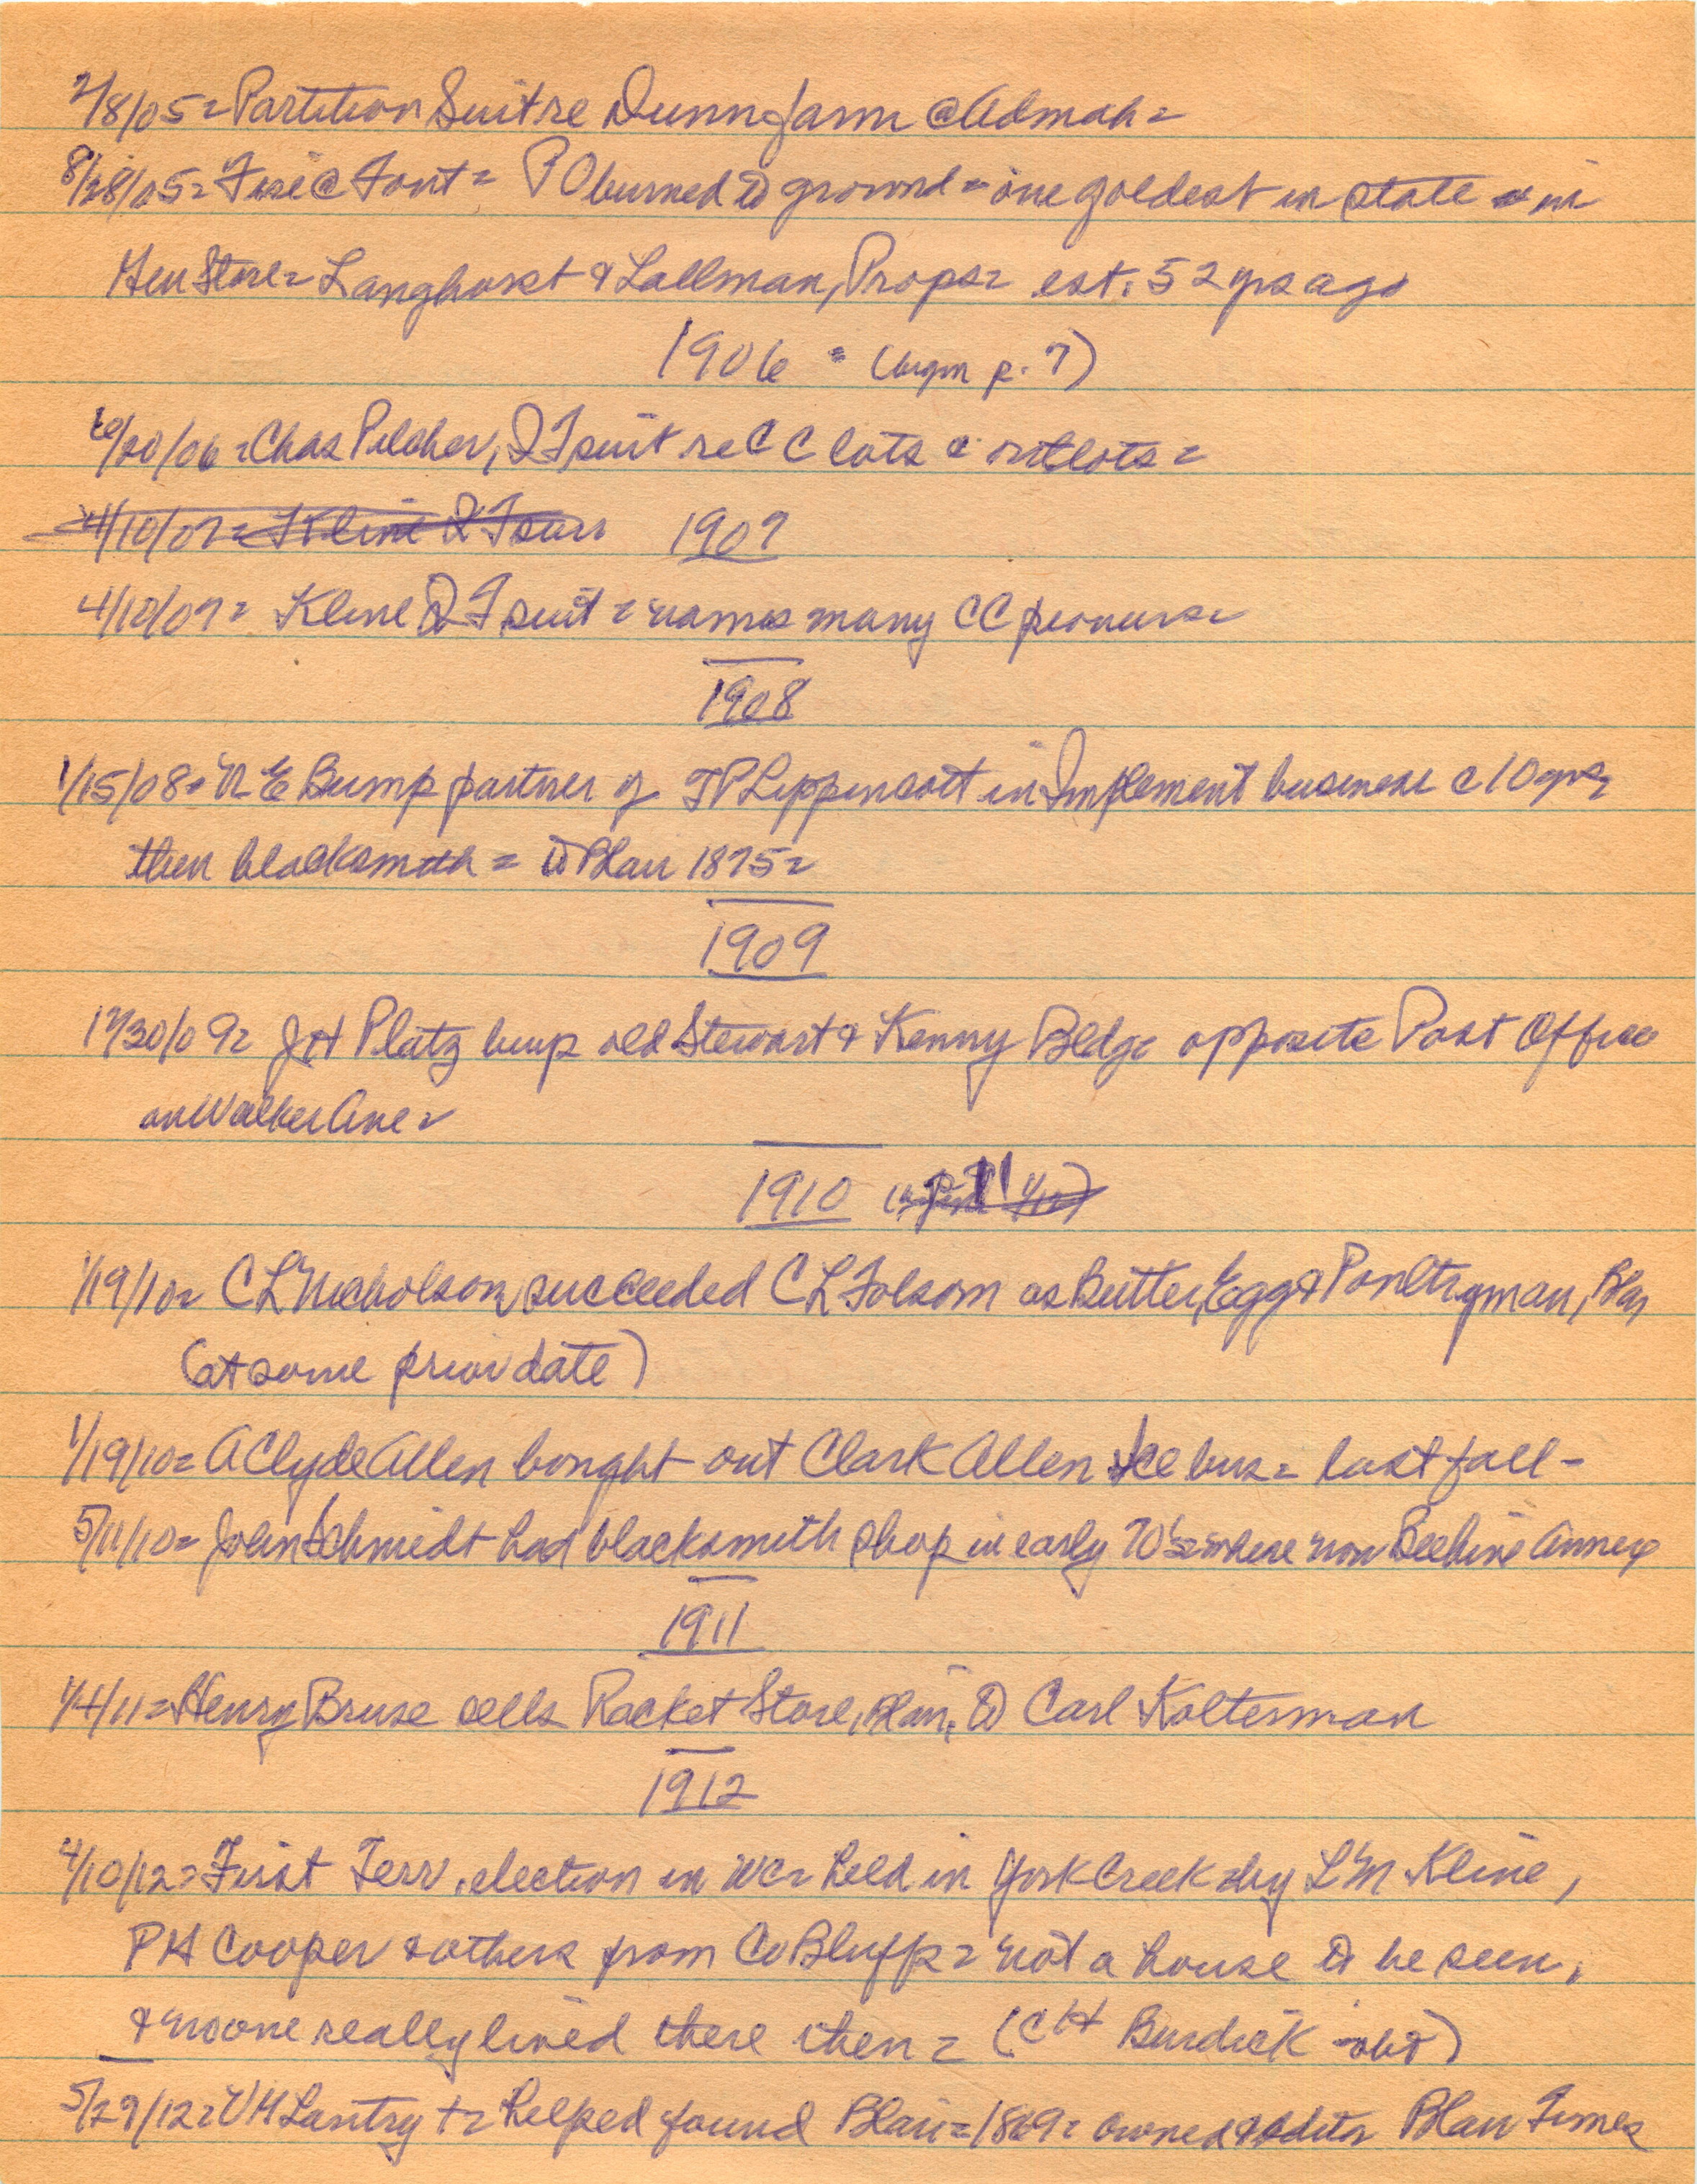 2/8/05 = Partition Suit re Dunn farm @ Admah =
8/28/05 = Fire @ Font = P O burned to ground = one of oldest in state in
Gen Store = Langhorst & Lallman, Props = est. 52 yrs ago
1906 = (begin p. 7)
/20/06 = Chas Pilcher, Q T suit re C C lots & outlots =
4/10/07 = Kline Q T suit 1907
4/10/07 = Kline Q T suit = names many C C pioneers =
1908
1/15/08 = N E Bump partner of T P Lippincott in Implement business c 10 yrs,
then blacksmith = to Blair 1875 =
1909
1/30/09 = J H Platz buys old Stewart & Kenny Bldg opposite Post Office
on Walker Ave =
1910
1/19/10 = C L Nicholson succeeded C L Folsom as Butter, Egg & Poultryman, Blair
(at some prior date)
1/19/10 = A Clyde Allen bought out Clark Allen Ice bus = last fall -
5/11/10 = John Schmidt had blacksmith shop in early 70's = where now Beehive Annex
1911
1/4/11 = Henry Bruse sells Racket Store, Blair, to Carl Kolterman
1912
4/10/12 = First Terr. election in WC = held in York Creek = by L M Kline,
P H Cooper & others from Co Bluffs = not a house to be seen,
& no one really lived there then = (C H Burdick - obt)
5/29/12 = V H Lantry + = helped found Blair = 1869 = owned & editor Blair Times